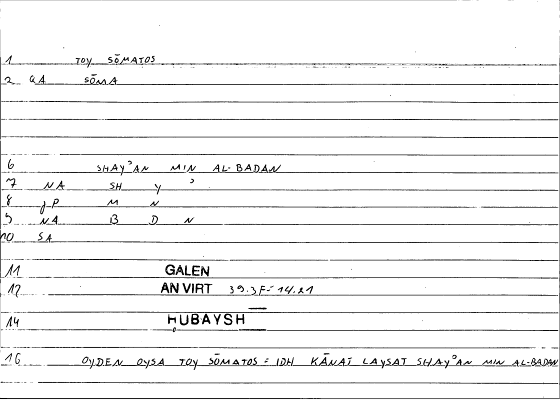 1 TOY SŌMATOS
2 GA SŌMA
6 SHAYʾAN MIN AL-BADAN
7 NA SH Y ʾ
8 JP M N
9 NA B D N
10 SA
11 GALEN
12 AN VIRT 39.3F=14.21
14 ḤUBAYSH
16 OYDEN OYSA TOY SŌMATOS = IDH KĀNAT LAYSAT SHAYʾAN MIN AL-BADAN